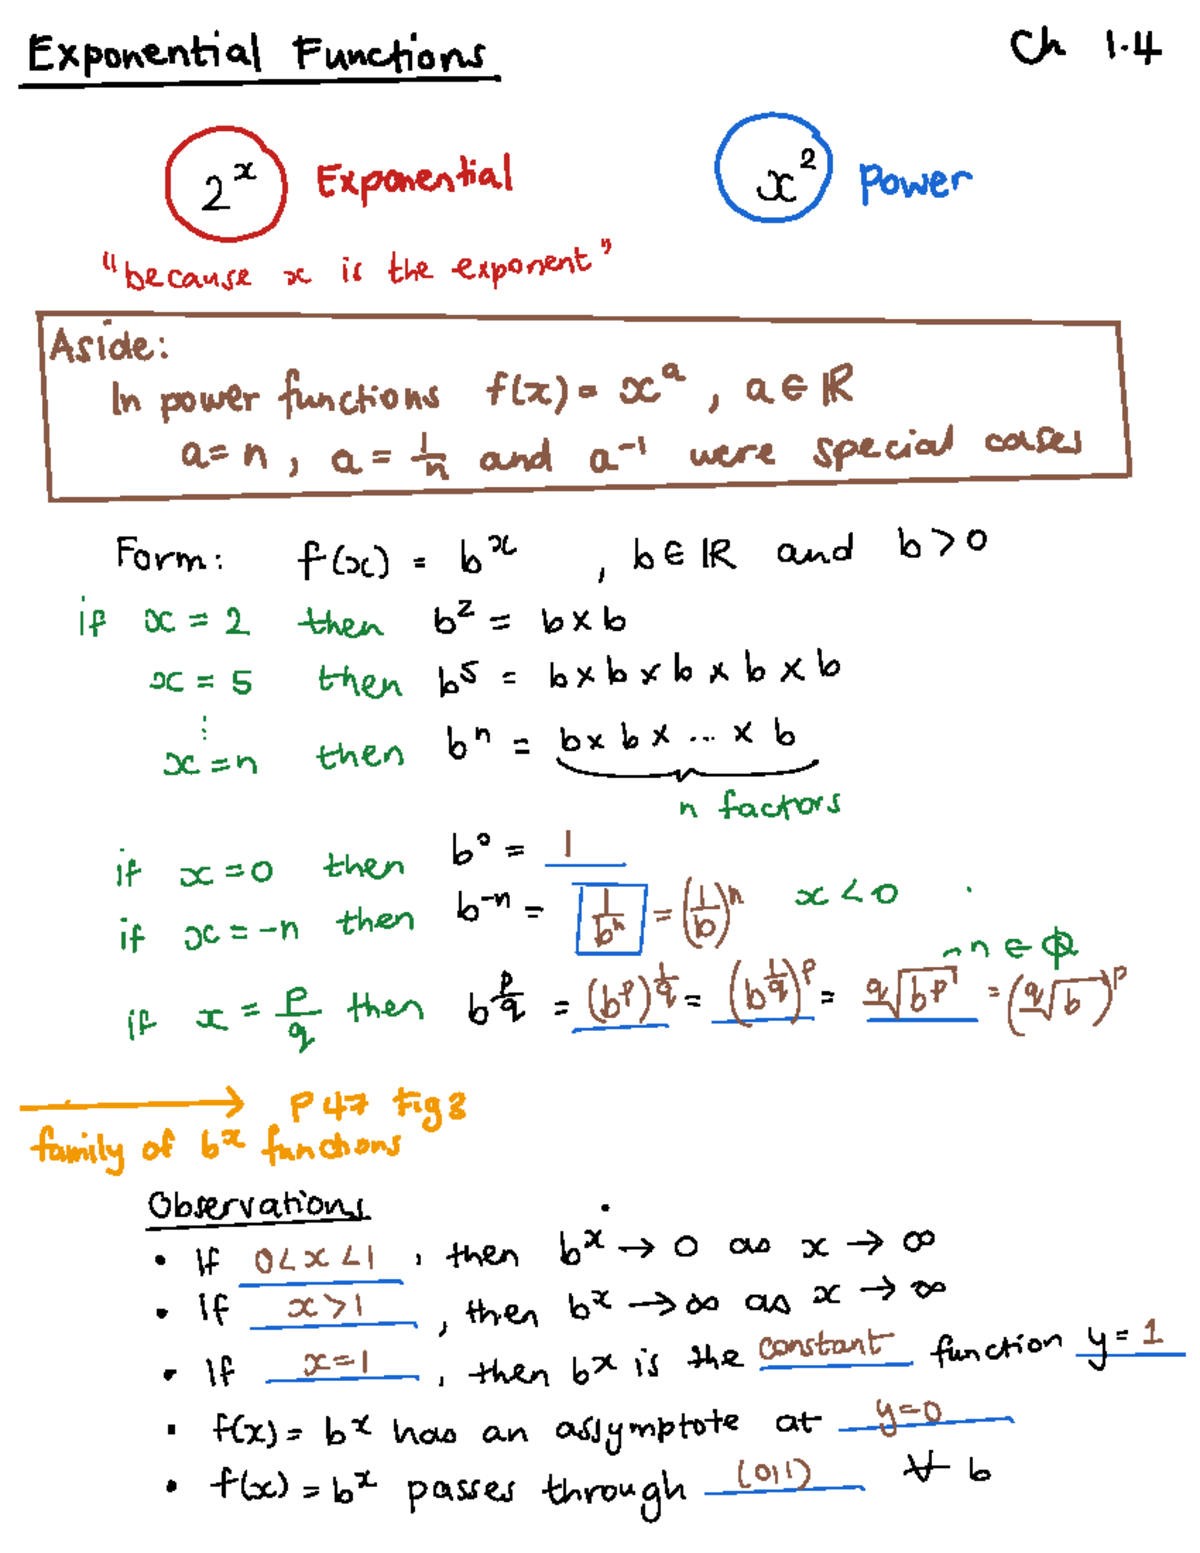 Exponential Functions Ch 1.4
2^x Exponential x^2 Power
"because x is the exponent"
Aside:
In power functions f(x) = x^a , a ∈ ℝ
a = n , a = 1/n and a^-1 were special cases
Form: f(x) = b^x , b ∈ ℝ and b > 0
if x = 2 then b^2 = b × b
x = 5 then b^5 = b × b × b × b × b
⋮
x = n then b^n = b × b × ... × b
n factors
if x = 0 then b^0 = 1
if x = -n then b^-n = 1/b^n = (1/b)^n x < 0
if x = p/q then b^(p/q) = (b^p)^(1/q) = (b^(1/q))^p = q√(b^p) = (q√b)^p
P 47 Fig 3
family of b^x functions
Observations
• If 0 < x < 1 , then b^x → 0 as x → ∞
• If x > 1 , then b^x → ∞ as x → ∞
• If x = 1 , then b^x is the constant function y = 1
• f(x) = b^x has an assymptote at y = 0
• f(x) = b^x passes through (0,1) ∀ b